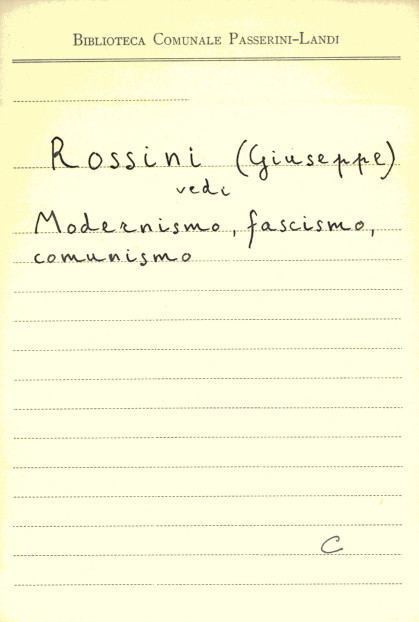 Biblioteca Comunale Passerini-Landi
Rossini (Giuseppe)
vedi
Modernismo, fascismo,
comunismo
C